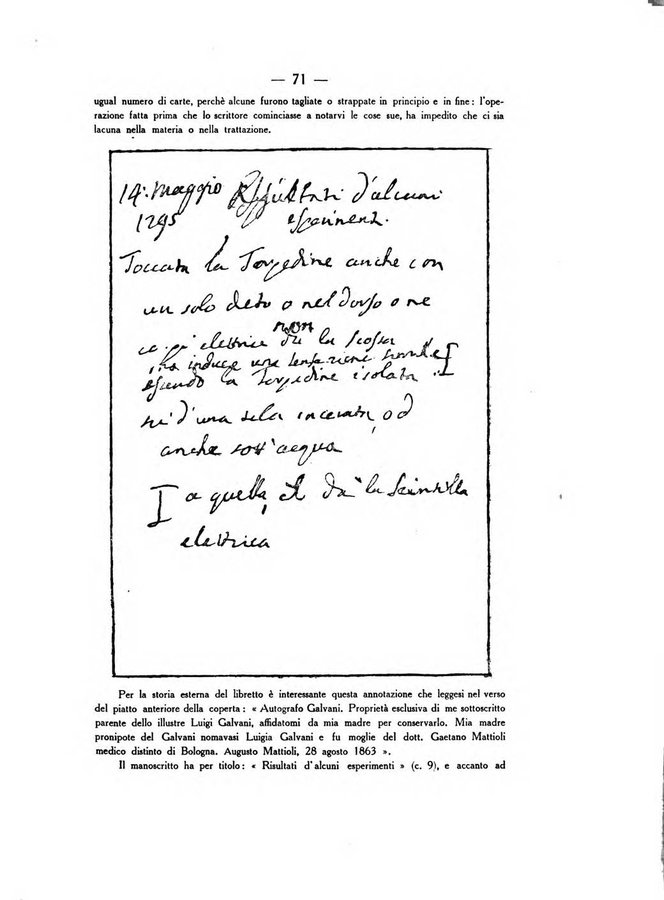 — 71 —
ugual numero di carte, perchè alcune furono tagliate o strappate in principio e in fine: l'ope-
razione fatta prima che lo scrittore cominciasse a notarvi le cose sue, ha impedito che ci sia
lacuna nella materia o nella trattazione.
14: Maggio Risultati d'alcuni
1795 esperimenti.
Toccata la Torpedine anche con
un solo deto o nel dorso o ne
elettrici non dà la scossa
ma induce una
essendo la Torpedine isolata
su d'una tela incerata, od
anche sott'acqua
a quella, che dà la Scintilla
elettrica
Per la storia esterna del libretto è interessante questa annotazione che leggesi nel verso
del piatto anteriore della coperta: « Autografo Galvani. Proprietà esclusiva di me sottoscritto
parente dello illustre Luigi Galvani, affidatomi da mia madre per conservarlo. Mia madre
pronipote del Galvani nomavasi Luigia Galvani e fu moglie del dott. Gaetano Mattioli
medico distinto di Bologna. Augusto Mattioli, 28 agosto 1863 ».
Il manoscritto ha per titolo: « Risultati d'alcuni esperimenti » (c. 9), e accanto ad